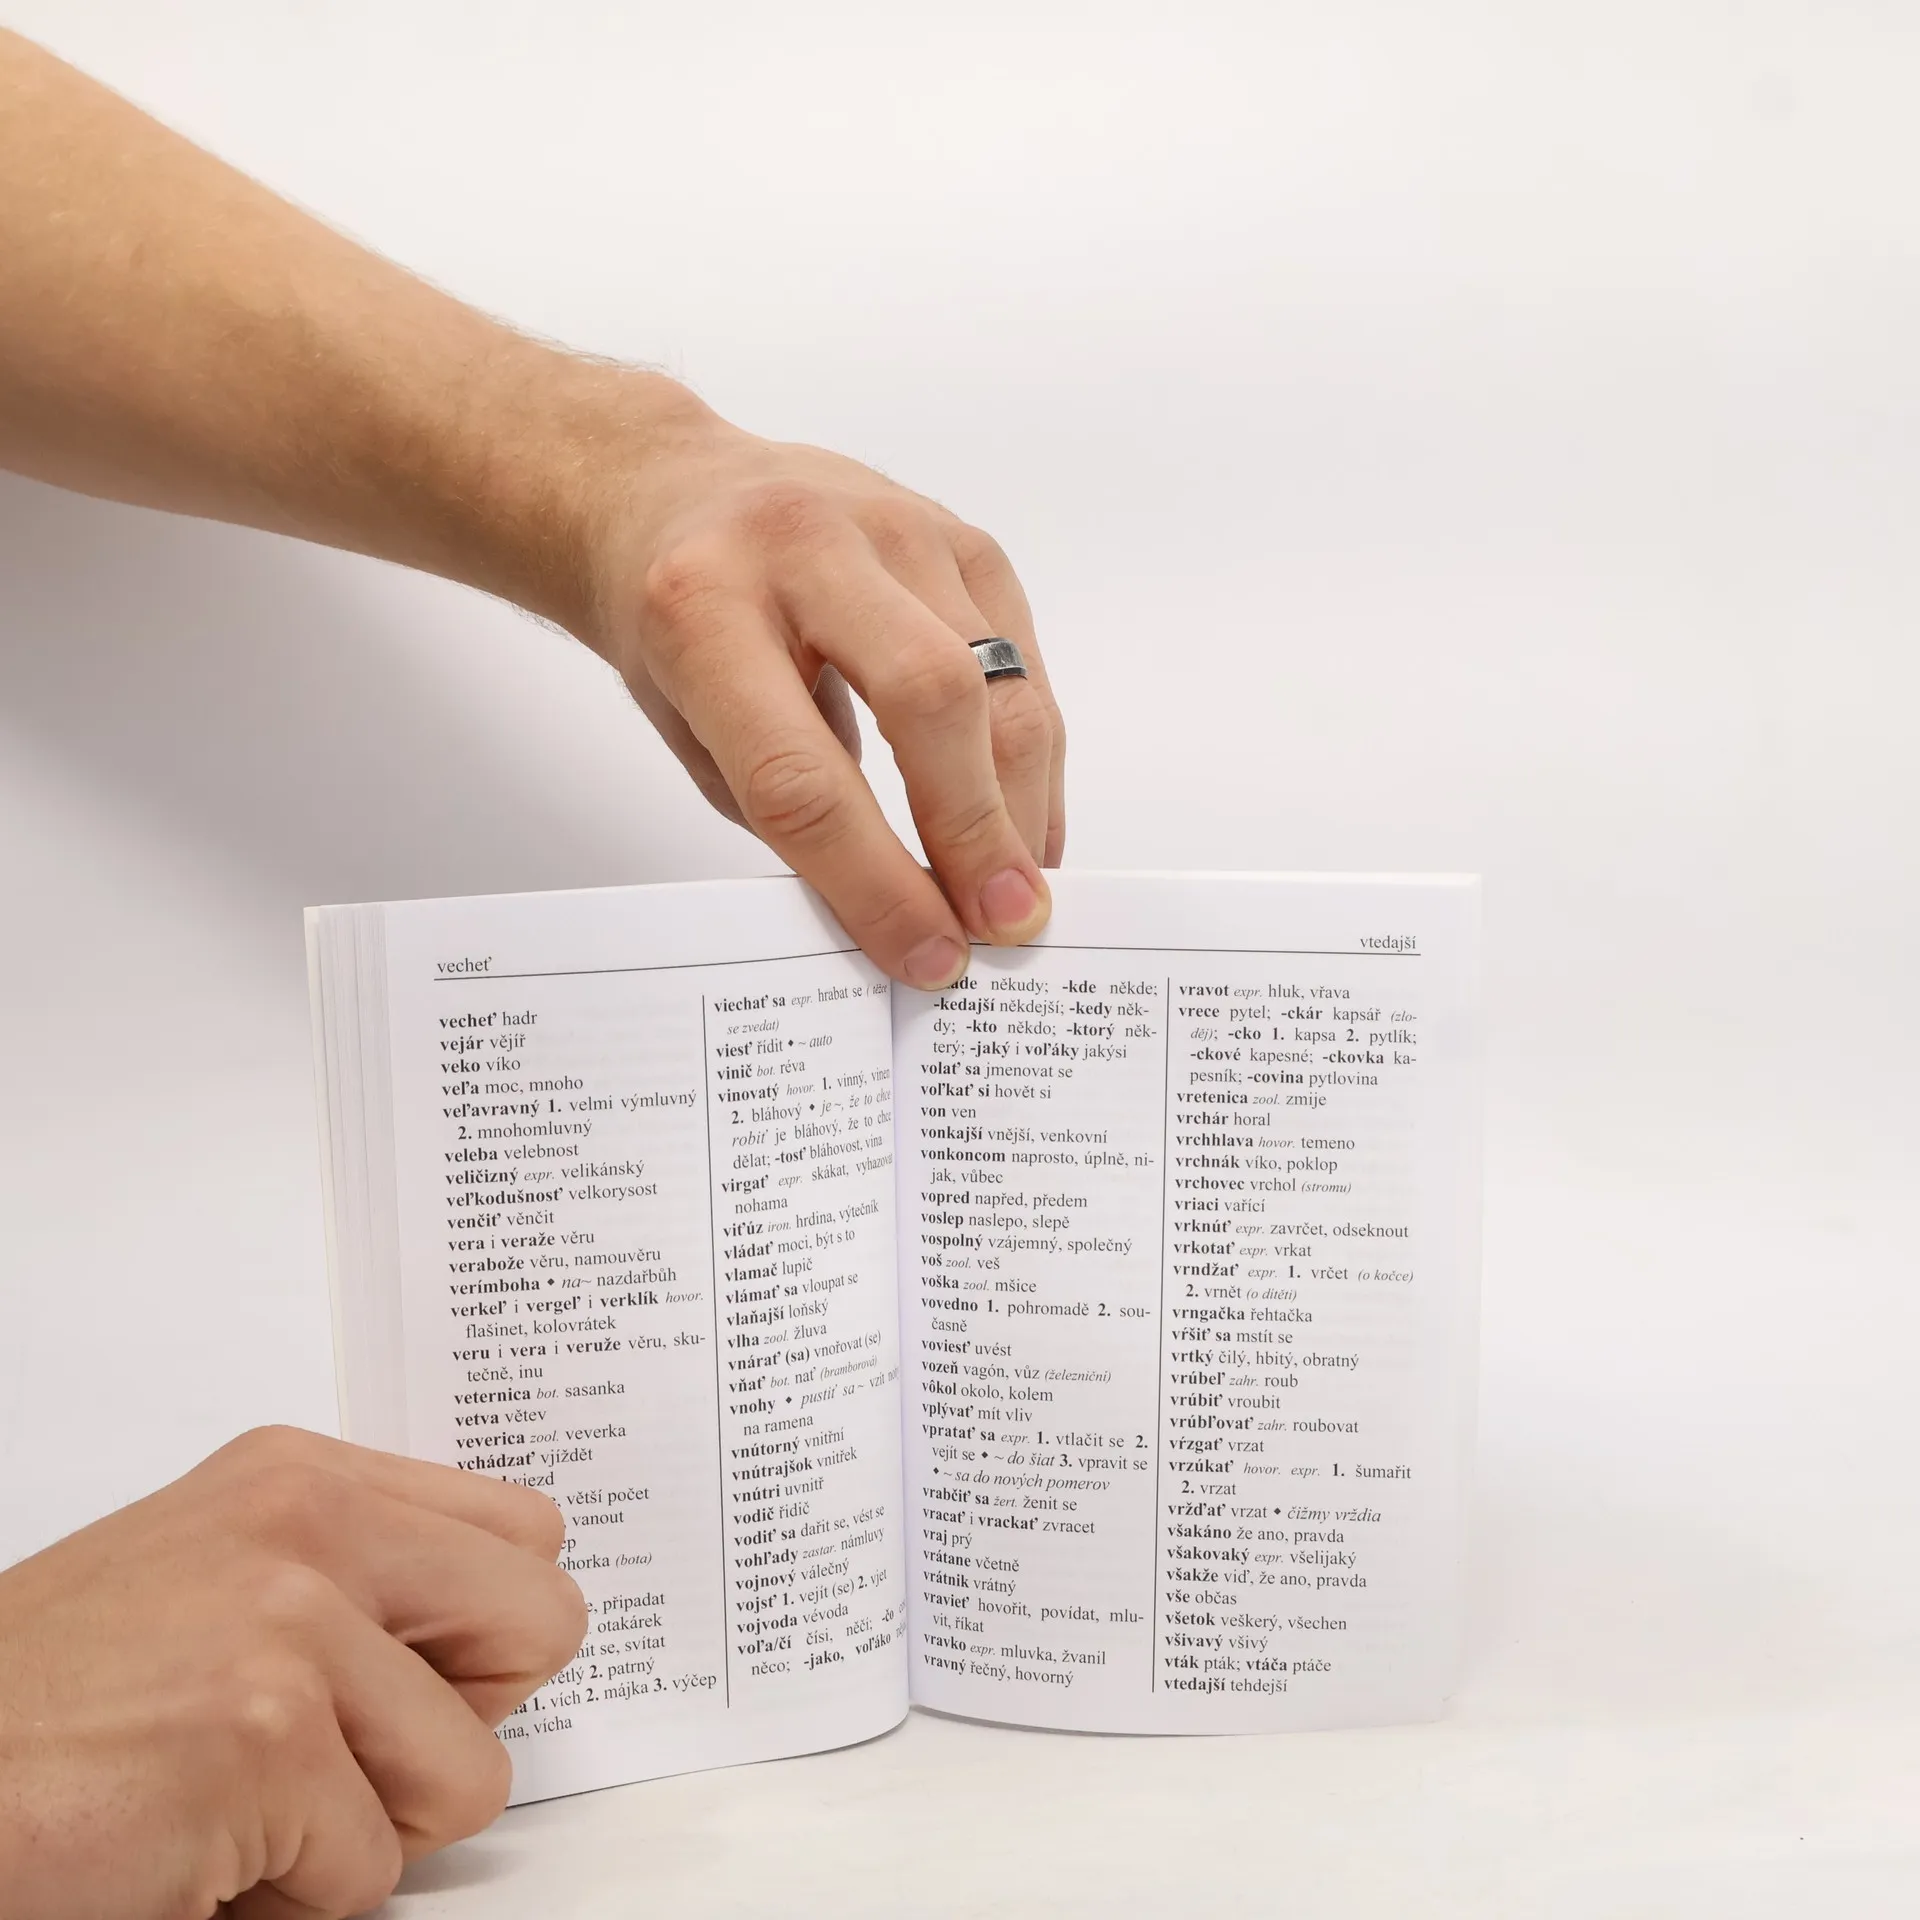 vecheť
vecheť hadr
vejár vějíř
veko víko
veľa moc, mnoho
veľavravný 1. velmi výmluvný
2. mnohomluvný
veleba velebnost
veličizný expr. velikánský
veľkodušnosť velkorysost
venčiť věnčit
vera i veraže věru
verabože věru, namouvěru
verímboha ◆ na~ nazdařbůh
verkeľ i vergeľ i verklík hovor.
flašinet, kolovrátek
veru i vera i veruže věru, sku-
tečně, inu
veternica bot. sasanka
vetva větev
veverica zool. veverka
vchádzať vjíždět
vjezd
, větší počet
, vanout
(bota)
, připadat
otakárek
se, svítat
2. patrný
1. vích 2. májka 3. výčep
vína, vícha
viechať sa expr. hrabat se (těžce
se zvedat)
viesť řídit ◆ ~ auto
vinič bot. réva
vinovatý hovor. 1. vinný, vinen
2. bláhový ◆ je ~, že to chce
robiť je bláhový, že to chce
dělat; -tosť bláhovost, vina
virgať expr. skákat, vyhazovat
nohama
viťúz iron. hrdina, výtečník
vládať moci, být s to
vlamač lupič
vlámať sa vloupat se
vlaňajší loňský
vlha zool. žluva
vnárať (sa) vnořovat (se)
vňať bot. nať (bramborová)
vnohy ◆ pustiť sa ~ vzít
na ramena
vnútorný vnitřní
vnútrajšok vnitřek
vnútri uvnitř
vodič řidič
vodiť sa dařit se, vést se
vohľady zastar. námluvy
vojnový válečný
vojsť 1. vejít (se) 2. vjet
vojvoda vévoda
voľa/čí čísi, něčí; -čo
něco; -jako, voľáko
vtedajší
někudy; -kde někde;
-kedajší někdejší; -kedy něk-
dy; -kto někdo; -ktorý něk-
terý; -jaký i voľáky jakýsi
volať sa jmenovat se
voľkať si hovět si
von ven
vonkajší vnější, venkovní
vonkoncom naprosto, úplně, ni-
jak, vůbec
vopred napřed, předem
voslep naslepo, slepě
vospolný vzájemný, společný
voš zool. veš
voška zool. mšice
vovedno 1. pohromadě 2. sou-
časně
voviesť uvést
vozeň vagón, vůz (železniční)
vôkol okolo, kolem
vplývať mít vliv
vpratať sa expr. 1. vtlačit se 2.
vejít se ◆ ~ do šiat 3. vpravit se
◆ ~ sa do nových pomerov
vrabčiť sa žert. ženit se
vracať i vrackať zvracet
vraj prý
vrátane včetně
vrátnik vrátný
vravieť hovořit, povídat, mlu-
vit, říkat
vravko expr. mluvka, žvanil
vravný řečný, hovorný
vravot expr. hluk, vřava
vrece pytel; -ckár kapsář (zlo-
děj); -cko 1. kapsa 2. pytlík;
-ckové kapesné; -ckovka ka-
pesník; -covina pytlovina
vretenica zool. zmije
vrchár horal
vrchhlava hovor. temeno
vrchnák víko, poklop
vrchovec vrchol (stromu)
vriaci vařící
vrknúť expr. zavrčet, odseknout
vrkotať expr. vrkat
vrndžať expr. 1. vrčet (o kočce)
2. vrnět (o dítěti)
vrngačka řehtačka
vŕšiť sa mstít se
vrtký čilý, hbitý, obratný
vrúbeľ zahr. roub
vrúbiť vroubit
vrúbľovať zahr. roubovat
vŕzgať vrzat
vrzúkať hovor. expr. 1. šumařit
2. vrzat
vržďať vrzat ◆ čižmy vrždia
všakáno že ano, pravda
všakovaký expr. všelijaký
všakže viď, že ano, pravda
vše občas
všetok veškerý, všechen
všivavý všivý
vták pták; vtáča ptáče
vtedajší tehdejší